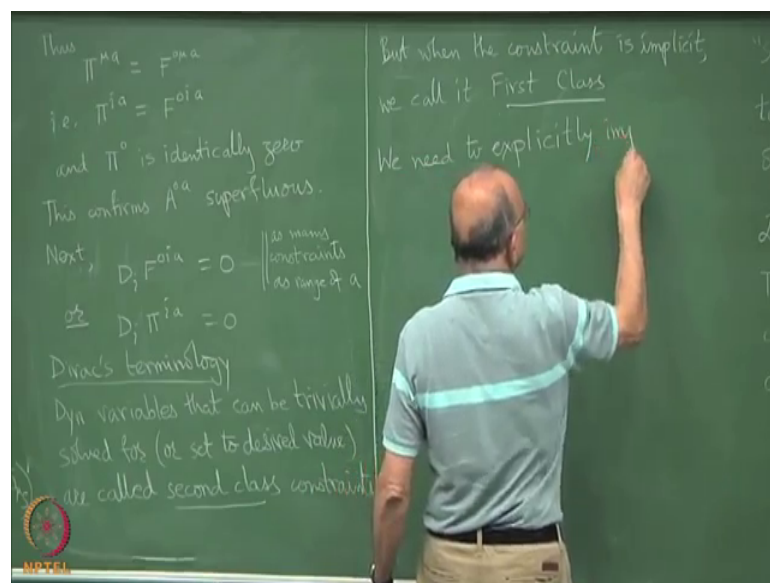 Thus
Π^{μa} = F^{0μa}
i.e. Π^{ia} = F^{0ia}
and Π^0 is identically zero
This confirms A^{0a} superfluous.
Next, D_i F^{0ia} = 0
as many
constraints
as range of a
or D_i Π^{ia} = 0
Dirac's terminology
Dyn variables that can be trivially
solved for (or set to desired value)
are called second class constraints
But when the constraint is implicit,
we call it First Class
We need to explicitly imp
NPTEL